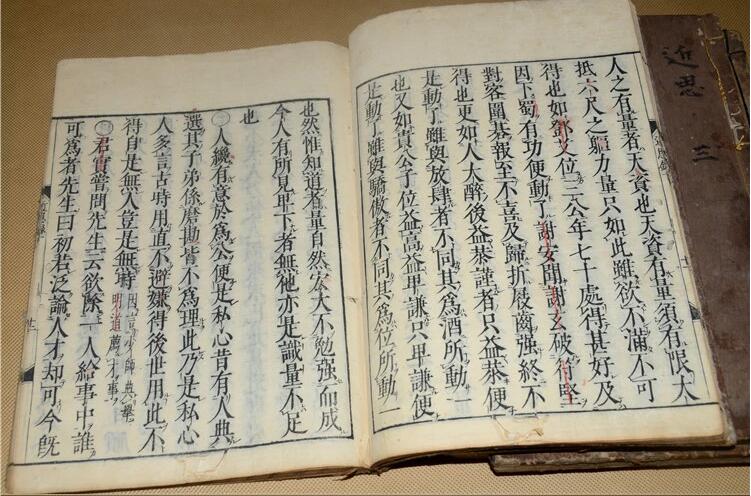 人之有量者天資也天資有量須有限大
抵六尺之軀力量只如此雖欲不滿不可
得也如鄧艾位三公年七十處得甚好及
因下蜀有功便動了謝安聞謝玄破符堅
對客圍棊報至不喜及歸折屐齒强終不
得也更如人大醉後益恭謹者只益恭便
是動了雖與放肆者不同其爲酒所動一
也又如貴公子位益高益卑謙只卑謙便
是動了雖與驕傲者不同其爲位所動一
也然惟知道者量自然宏大不勉强而成
今人有所見卑下者無他亦是識量不足
也
人纔有意於爲公便是私心昔有人典
選其子弟係磨勘皆不爲理此乃是私心
人多言古時用直不避嫌得後世用此不
得自是無人豈是無時因言少師典舉明道薦才事
君實嘗問先生云欲除一人給事中誰
可爲者先生曰初若泛論人才却可今旣
近思
三